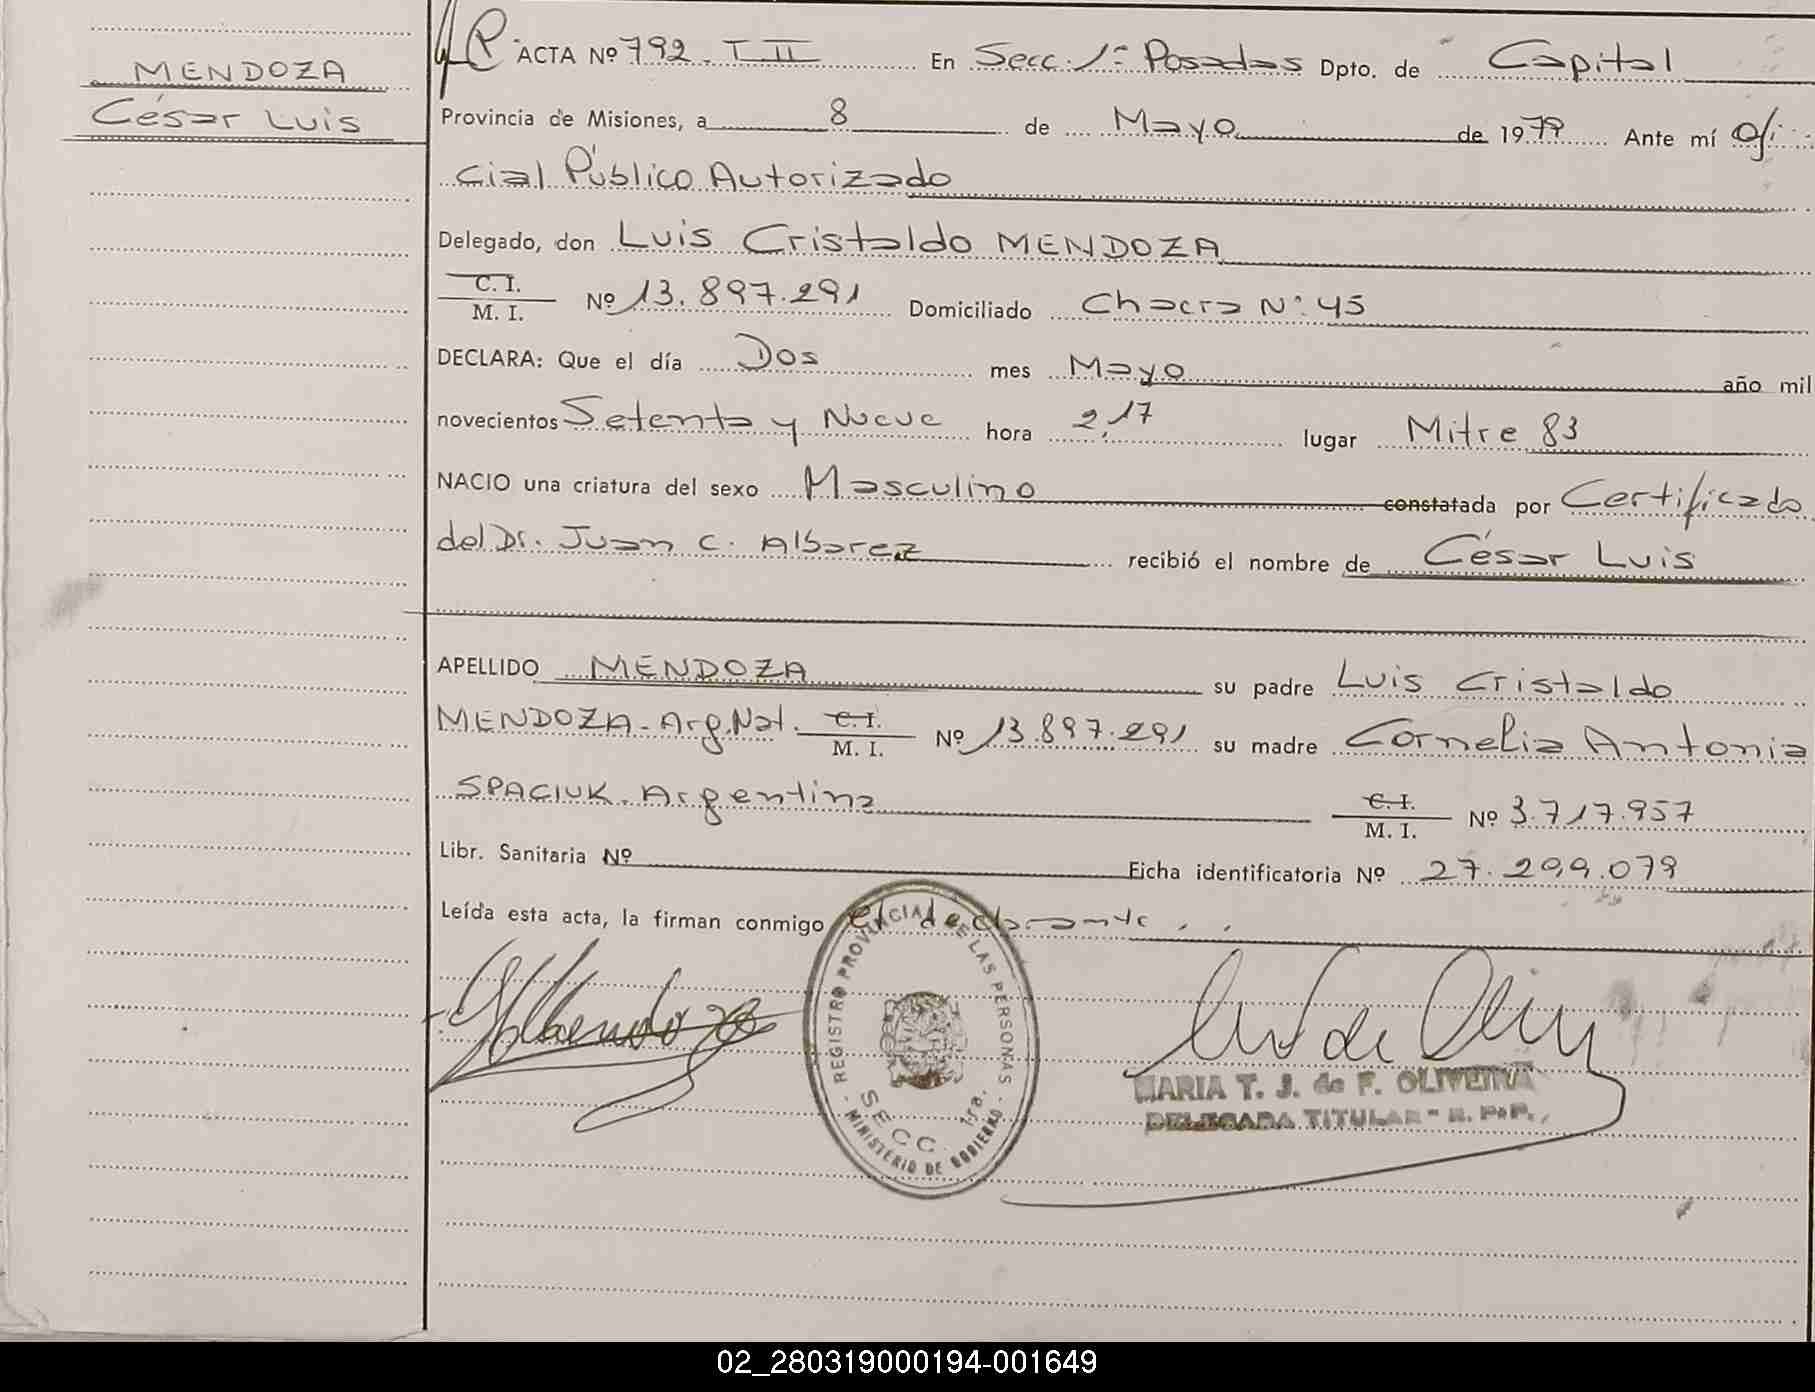 MENDOZA
César Luis
ACTA Nº 792. T II En Secc. 1ª Posadas Dpto. de Capital
Provincia de Misiones, a 8 de Mayo de 1979 Ante mí Ofi-
cial Público Autorizado
Delegado, don Luis Cristaldo MENDOZA
C. I.
M. I. Nº 13.897.291 Domiciliado Chacra Nº: 45
DECLARA: Que el día Dos mes Mayo año mil
novecientos Setenta y Nueve hora 2,17 lugar Mitre 83
NACIO una criatura del sexo Masculino constatada por Certificado
del Dr. Juan C. Albarez recibió el nombre de César Luis
APELLIDO MENDOZA su padre Luis Cristaldo
MENDOZA - Arg. Nat. C. I. M. I. Nº 13.897.291 su madre Cornelia Antonia
SPACIUK. Argentina C. I. M. I. Nº 3.717.957
Libr. Sanitaria Nº Ficha identificatoria Nº 27.299.079
Leída esta acta, la firman conmigo el declarante
REGISTRO PROVINCIAL DE LAS PERSONAS
SECC. 1ra.
- MINISTERIO DE GOBIERNO -
MARIA T. J. de F. OLIVEIRA
DELEGADA TITULAR - R. P. P.
02_280319000194-001649